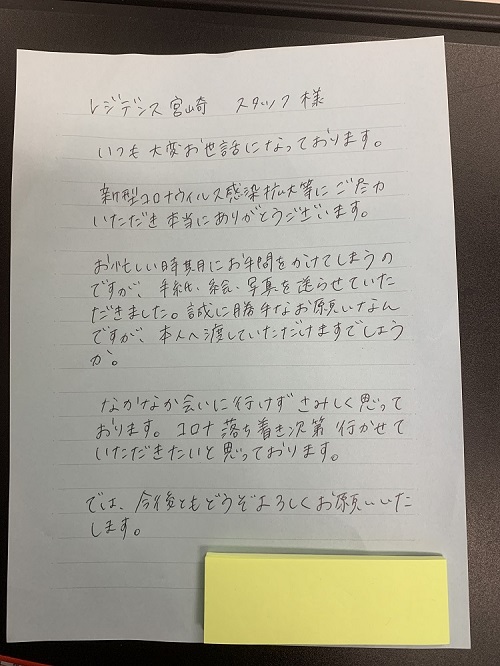 レジデンス宮崎　スタッフ様
いつも大変お世話になっております。
新型コロナウィルス感染拡大等にご尽力
いただき本当にありがとうございます。
お忙しい時期にお手間をかけてしまうの
ですが、手紙、絵、写真を送らせていた
だきました。誠に勝手なお願いなん
ですが、本人へ渡していただけますでしょう
か。
なかなか会いに行けずさみしく思って
おります。コロナ落ち着き次第行かせて
いただきたいと思っております。
では、今後ともどうぞよろしくお願いいた
します。